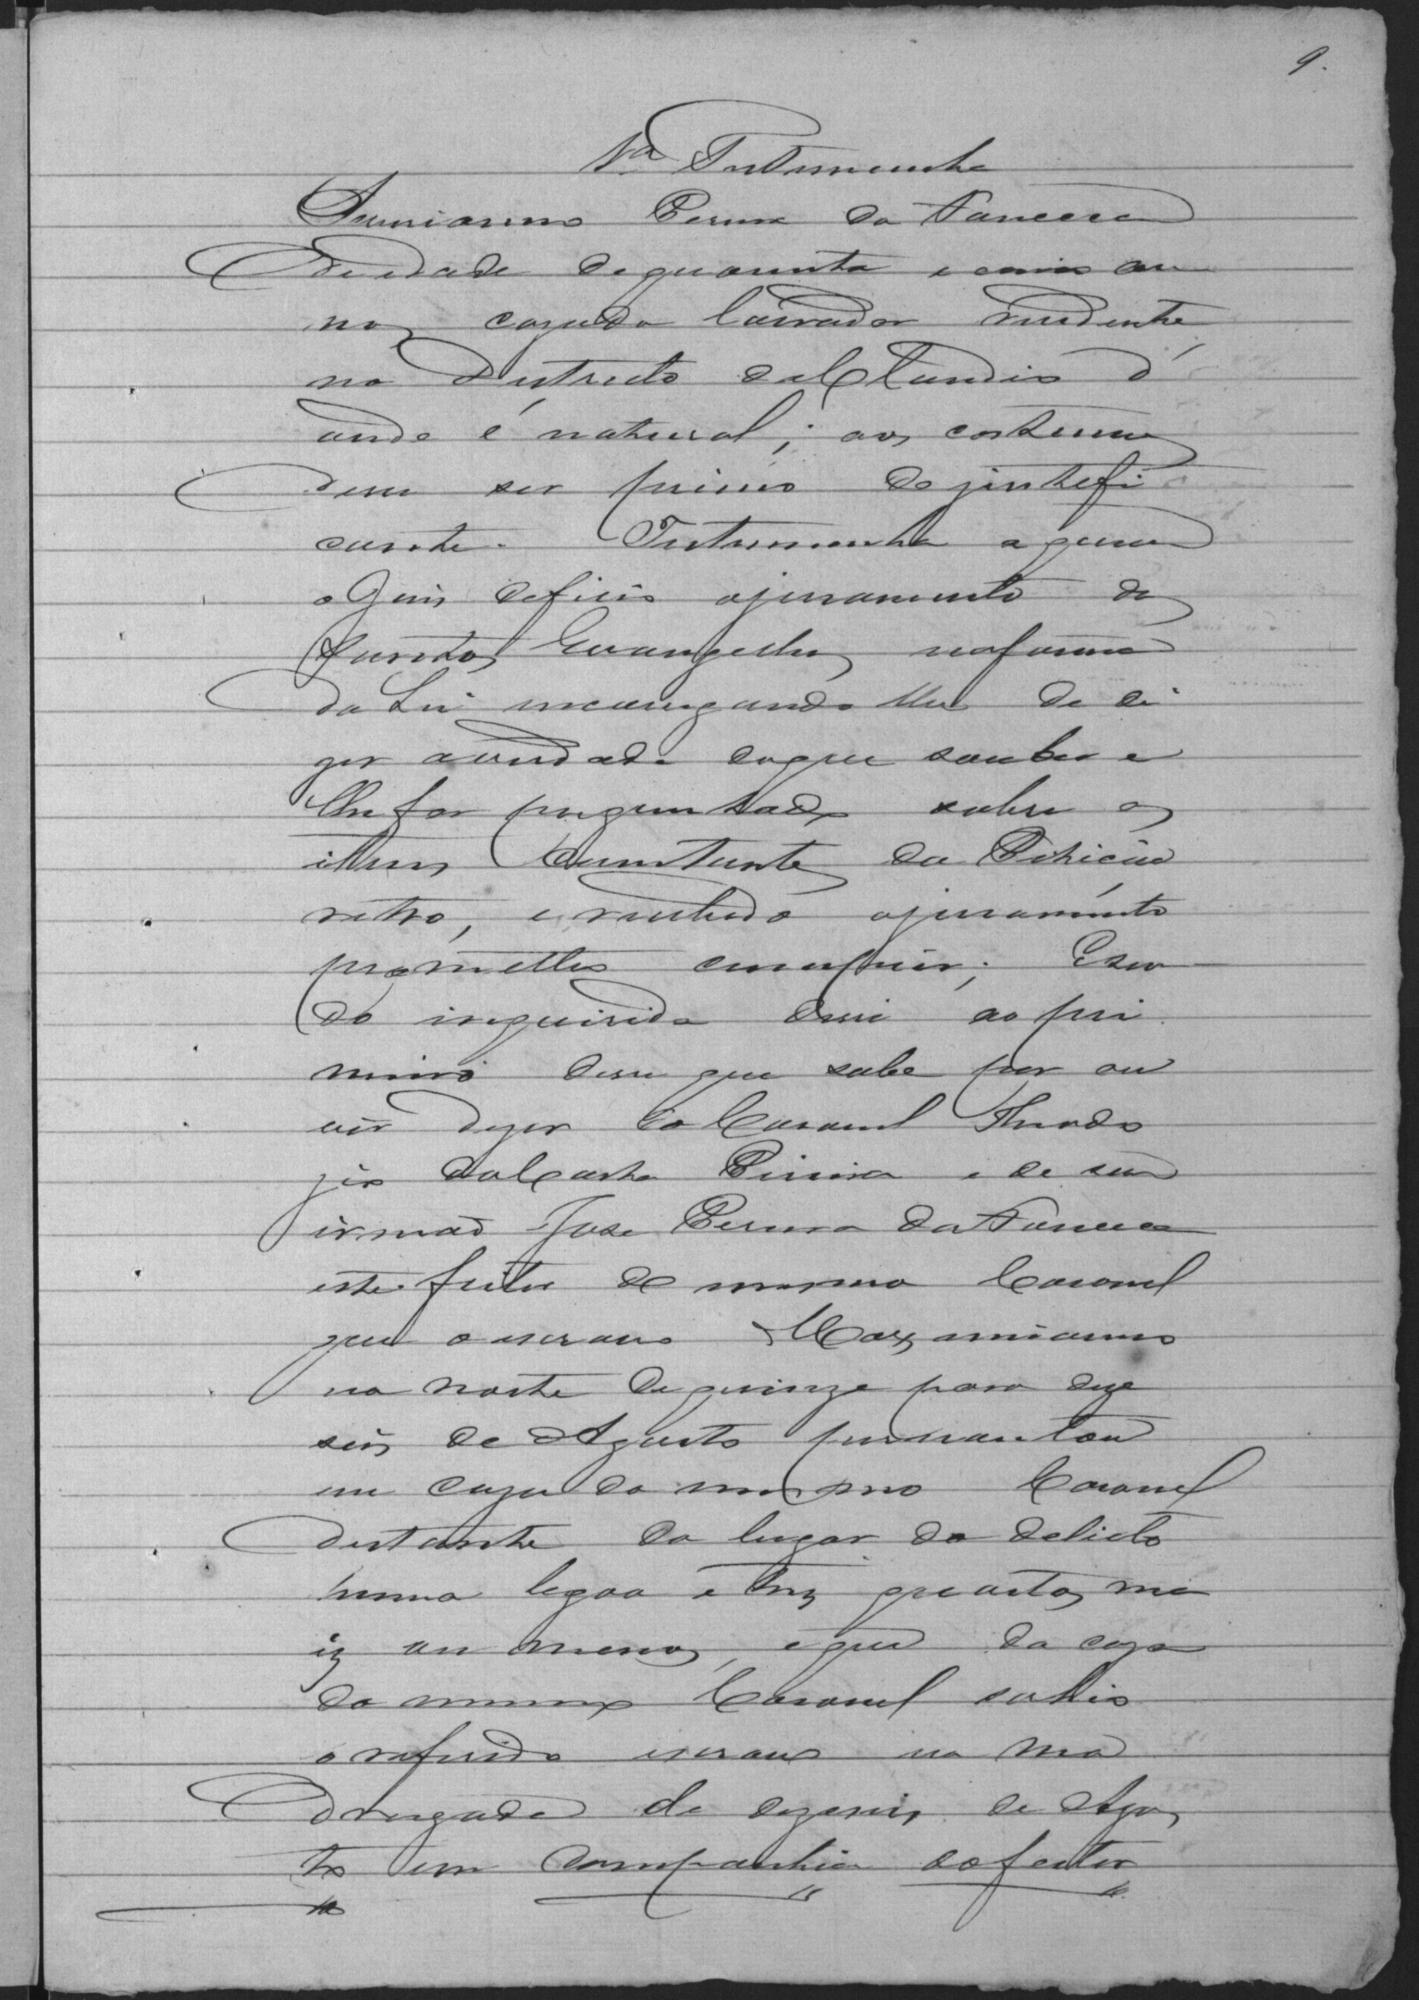 9.
1ª Testemunha
Pereira da Fonceca
de idade de quarenta e cinco an
nos cazado lavrador rezidente
no Destricto do Claudio d'
onde é natural; aos costumes
disse ser primo do justifi
cante. Testemunha a quem
o Juis deferio o juramento dos
Santos Evangelhos na forma
da Lei encarregando lhe de di
zer a verdade do que souber e
lhe for preguntado sobre os
itens constantes da Petição
retro, e recebido o juramento
prometteo cumprir; E sen
do inquirido disse ao pri
meiro disse que sabe por ou
vir dizer do Coronel Theodo
zio da Costa Pereira e de seu
irmão Jose Pereira da Fonceca
este feitor do mesmo Coronel
que o escravo Maxsimianno
na noite de quinze para deze
seis de Agosto pernantou
em caza do mesmo Coronel
distante do lugar do delicto
huma legoa e trez quartos ma
is ou menos, e que da caza
do mesmo Coronel sahio
o referido escravo na ma
drugada de dezeseis de Agos
to em companhia do feitor